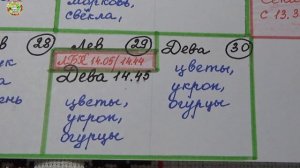 морковь,
свёкла,
с 13.3
28
Лев
29
Дева
30
ЛБК 14.05/14.44
Дева 14.45
цветы,
укроп,
огурцы
цветы,
укроп,
огурцы